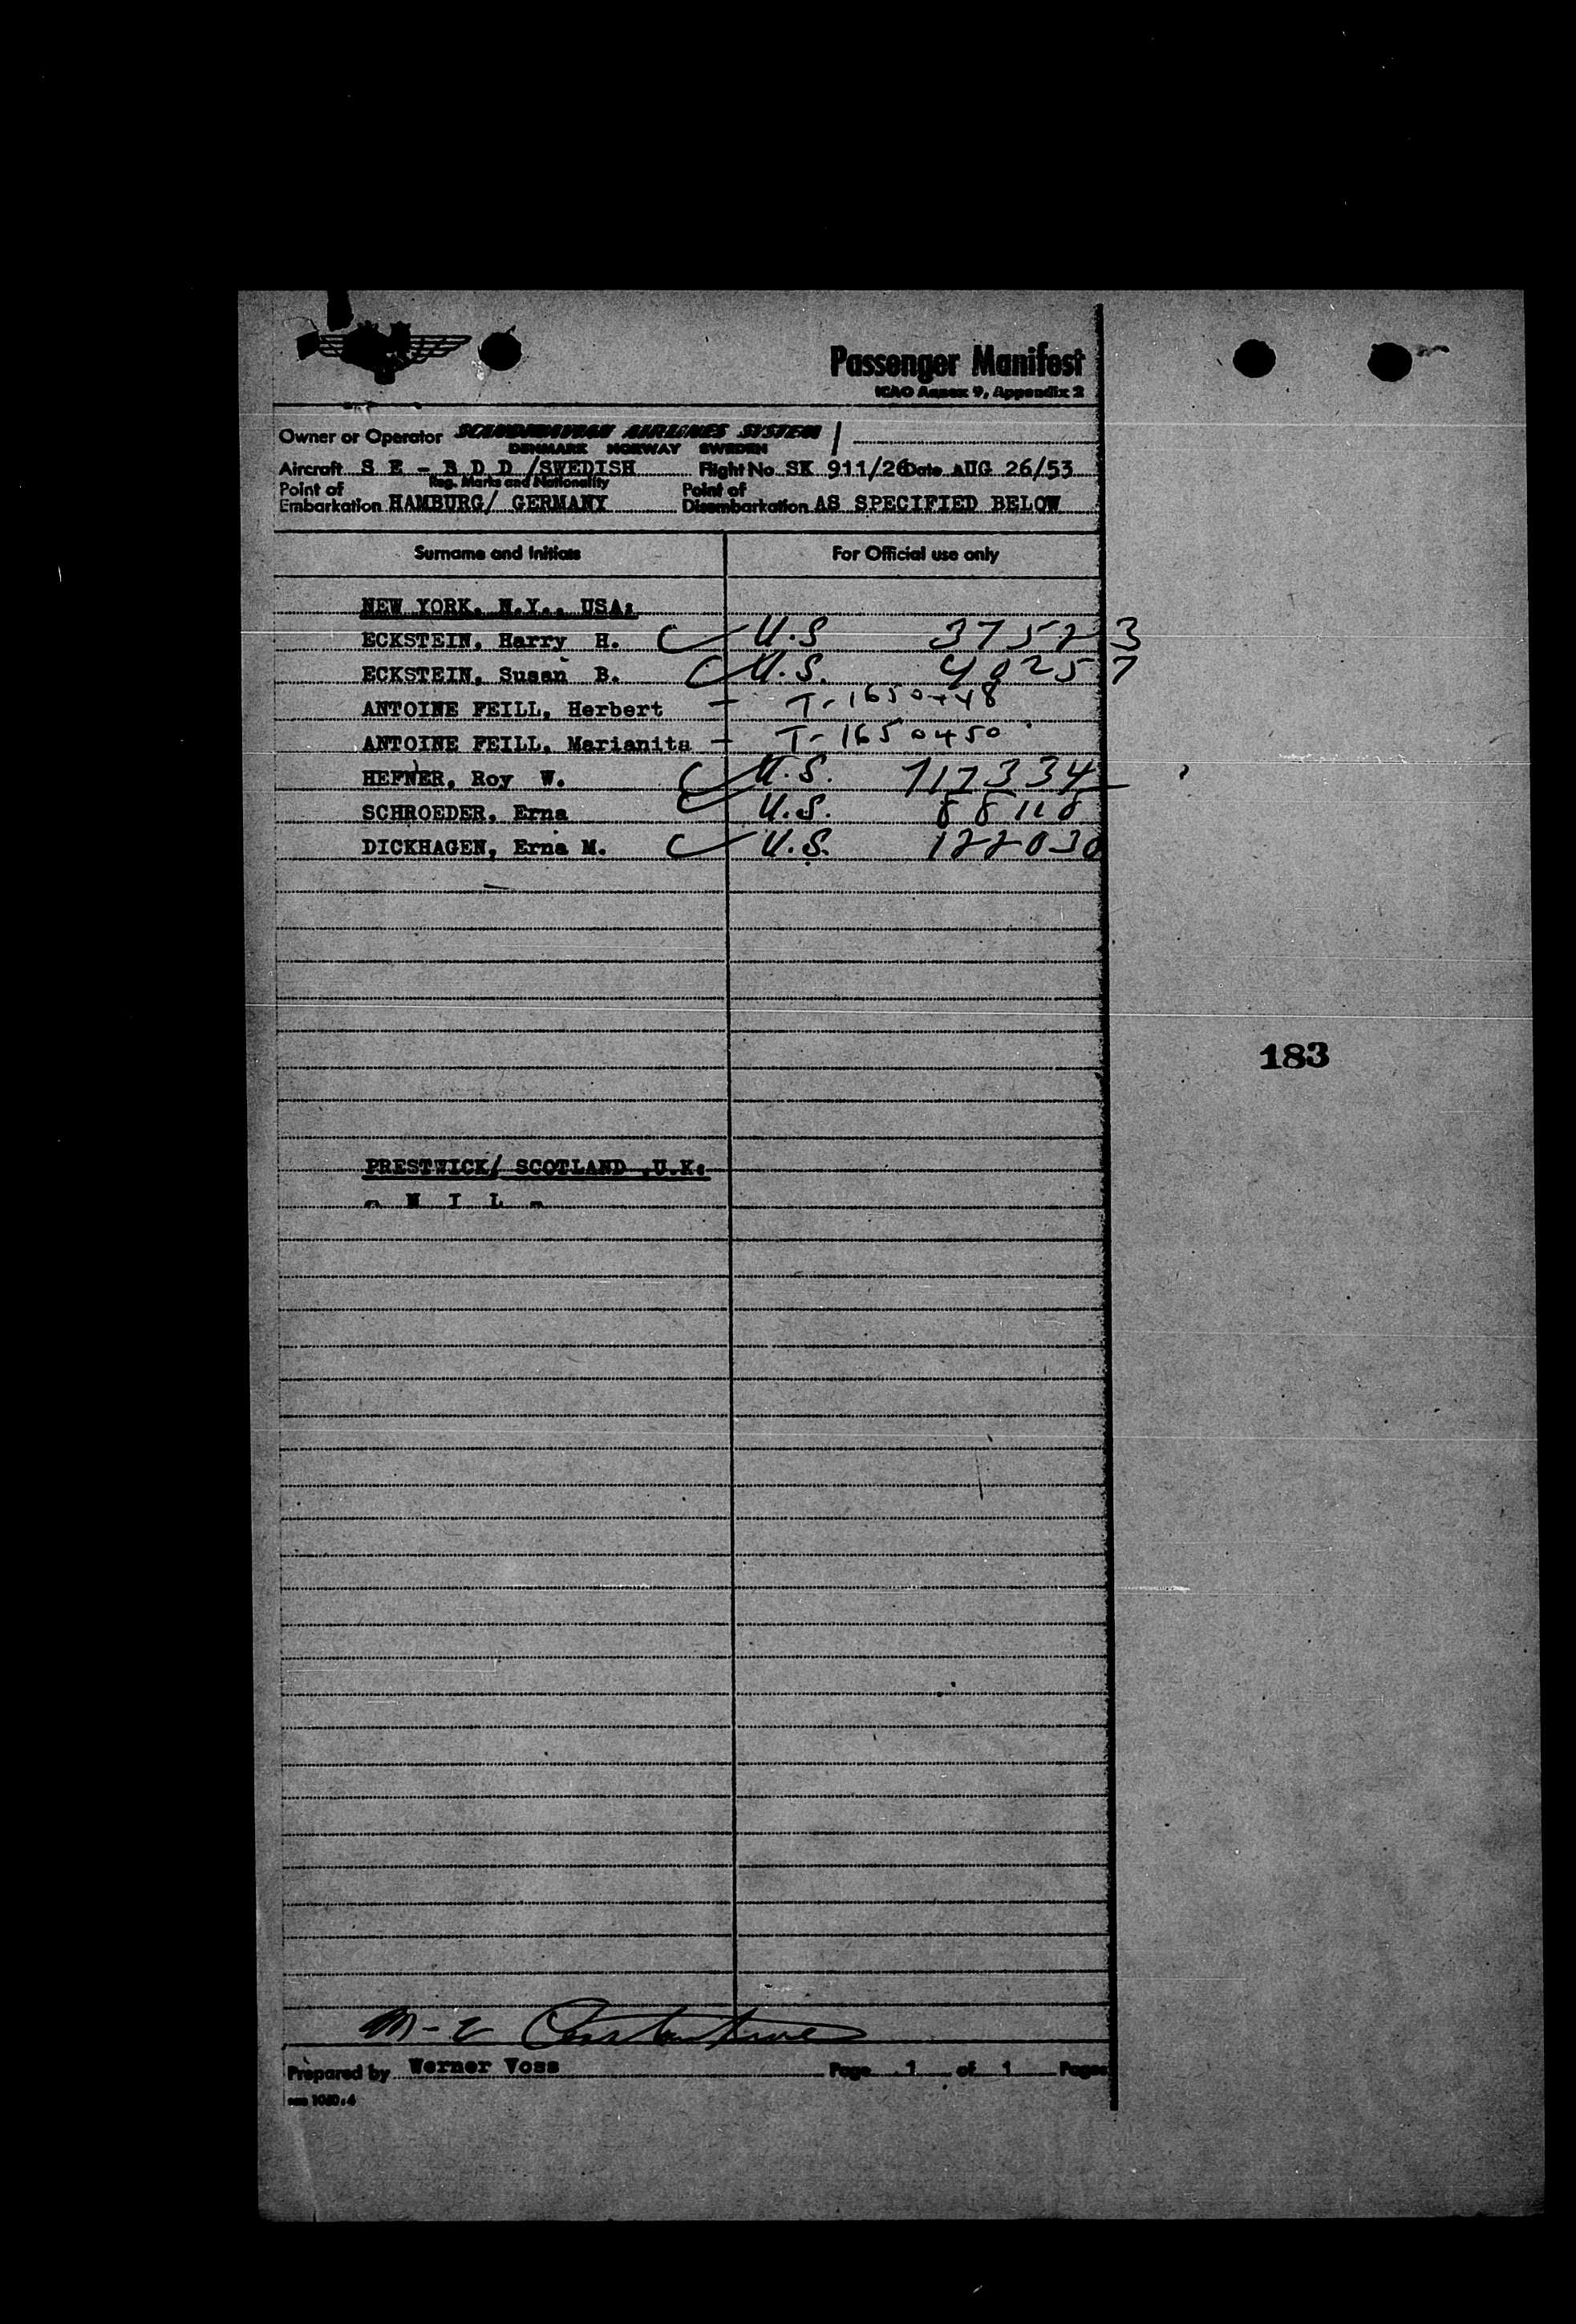 Passenger Manifest
ICAO Annex 9, Appendix 2
Owner or Operator SCANDINAVIAN AIRLINES SYSTEM
DENMARK NORWAY SWEDEN
Aircraft S E - B D D /SWEDISH Flight No. SK 911/26 Date AUG 26/53
Reg. Marks and Nationality
Point of Embarkation HAMBURG/ GERMANY Point of Disembarkation AS SPECIFIED BELOW
Surname and Initials For Official use only
NEW YORK, N.Y., USA:
ECKSTEIN, Harry H. U.S 37523
ECKSTEIN, Susan B. U.S. 40257
ANTOINE FEILL, Herbert - T-1650448
ANTOINE FEILL, Marianita - T-1650450
HEFNER, Roy W. U.S. 717334
SCHROEDER, Erna U.S.
DICKHAGEN, Erna M. U.S. 122030
183
PRESTWICK/ SCOTLAND ,U.K:
- N I L -
Prepared by Werner Voss Page 1 of 1 Pages